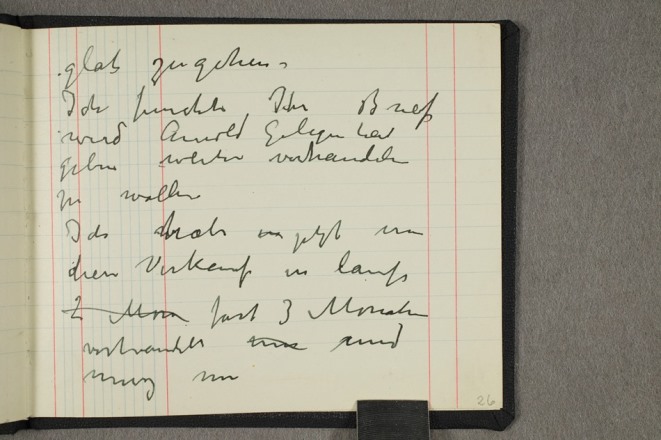 glatt zugehen.
Ich fürchte Ihr Brief
wird Arnold Gelegenheit
geben weiter verhandeln
zu wollen
Ich habe jetzt um
den Verkauf in
2 Mon fast 3 Monate
verhandelt und
muss nun
26